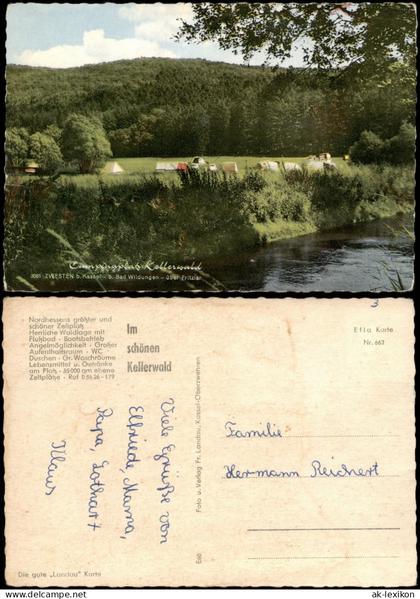 Campingplatz Kellerwald
3581 ZWESTEN b. Kassel - b. Bad Wildungen - über Fritzlar
Nordhessens größter und
schöner Zeltplatz
Herrliche Waldlage mit
Flußbad - Bootsbetrieb
Angelmöglichkeit - Großer
Aufenthaltsraum - WC
Duschen - Gr. Waschräume
Lebensmittel u. Getränke
am Platz - 35000 qm ebene
Zeltplätze - Ruf 05626-179
Im
schönen
Kellerwald
Viele Grüße von
Elfriede, Mama,
Papa, Lothar +
Klaus
Die gute „Landau" Karte
Foto u. Verlag Fr. Landau, Kassel-Oberzwehren
Efla Karte
Nr. 662
Familie
Hermann Reichert
ak-lexikon
www.ak-lexikon.de